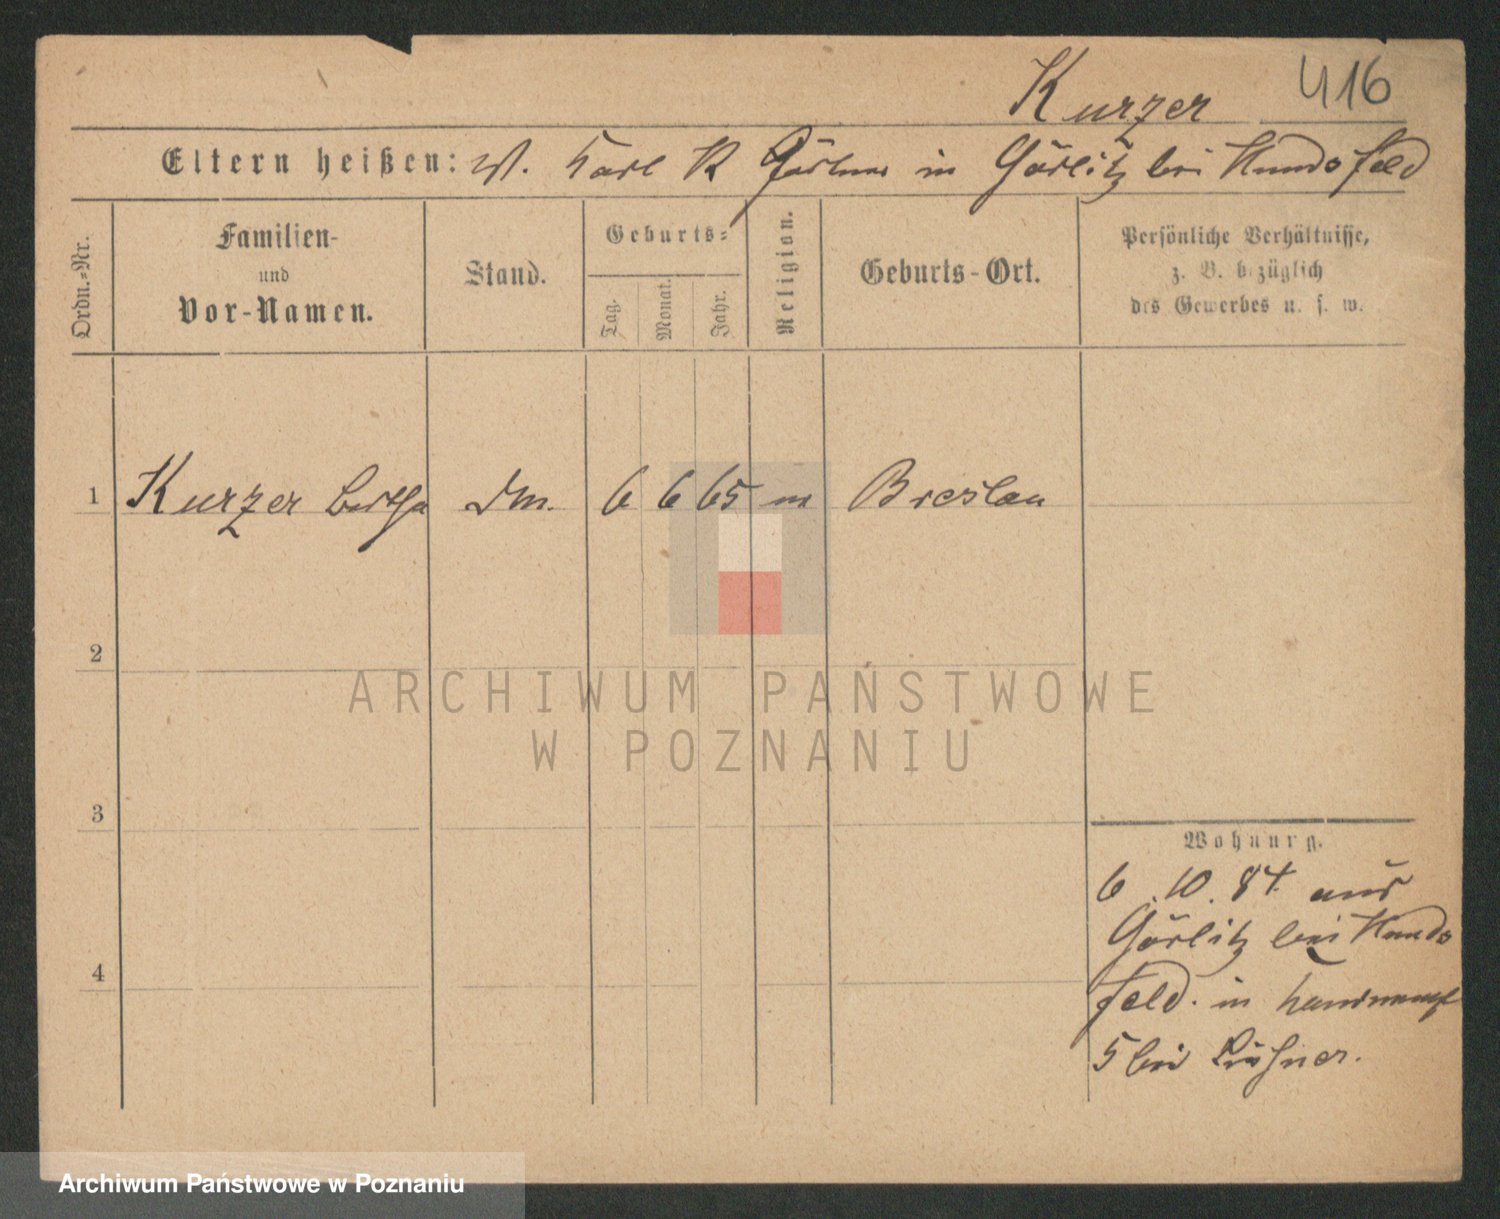 Kurzer 416
Eltern heißen: W. Karl K Gärtner in Görlitz bei Hundsfeld
Ordn.-Nr.
Familien-
und
Vor-Namen.
Stand.
Geburts-
Tag.
Monat.
Jahr.
Religion.
Geburts-Ort.
Persönliche Verhältnisse,
z. B. bezüglich
des Gewerbes u. s. w.
1 Kurzer Bertha Dm. 6 6 65 Breslau
2
3
4
Wohnung.
6.10.84 aus
Görlitz bei Hunds
feld. in
5 bei
ARCHIWUM PAŃSTWOWE
W POZNANIU
Archiwum Państwowe w Poznaniu